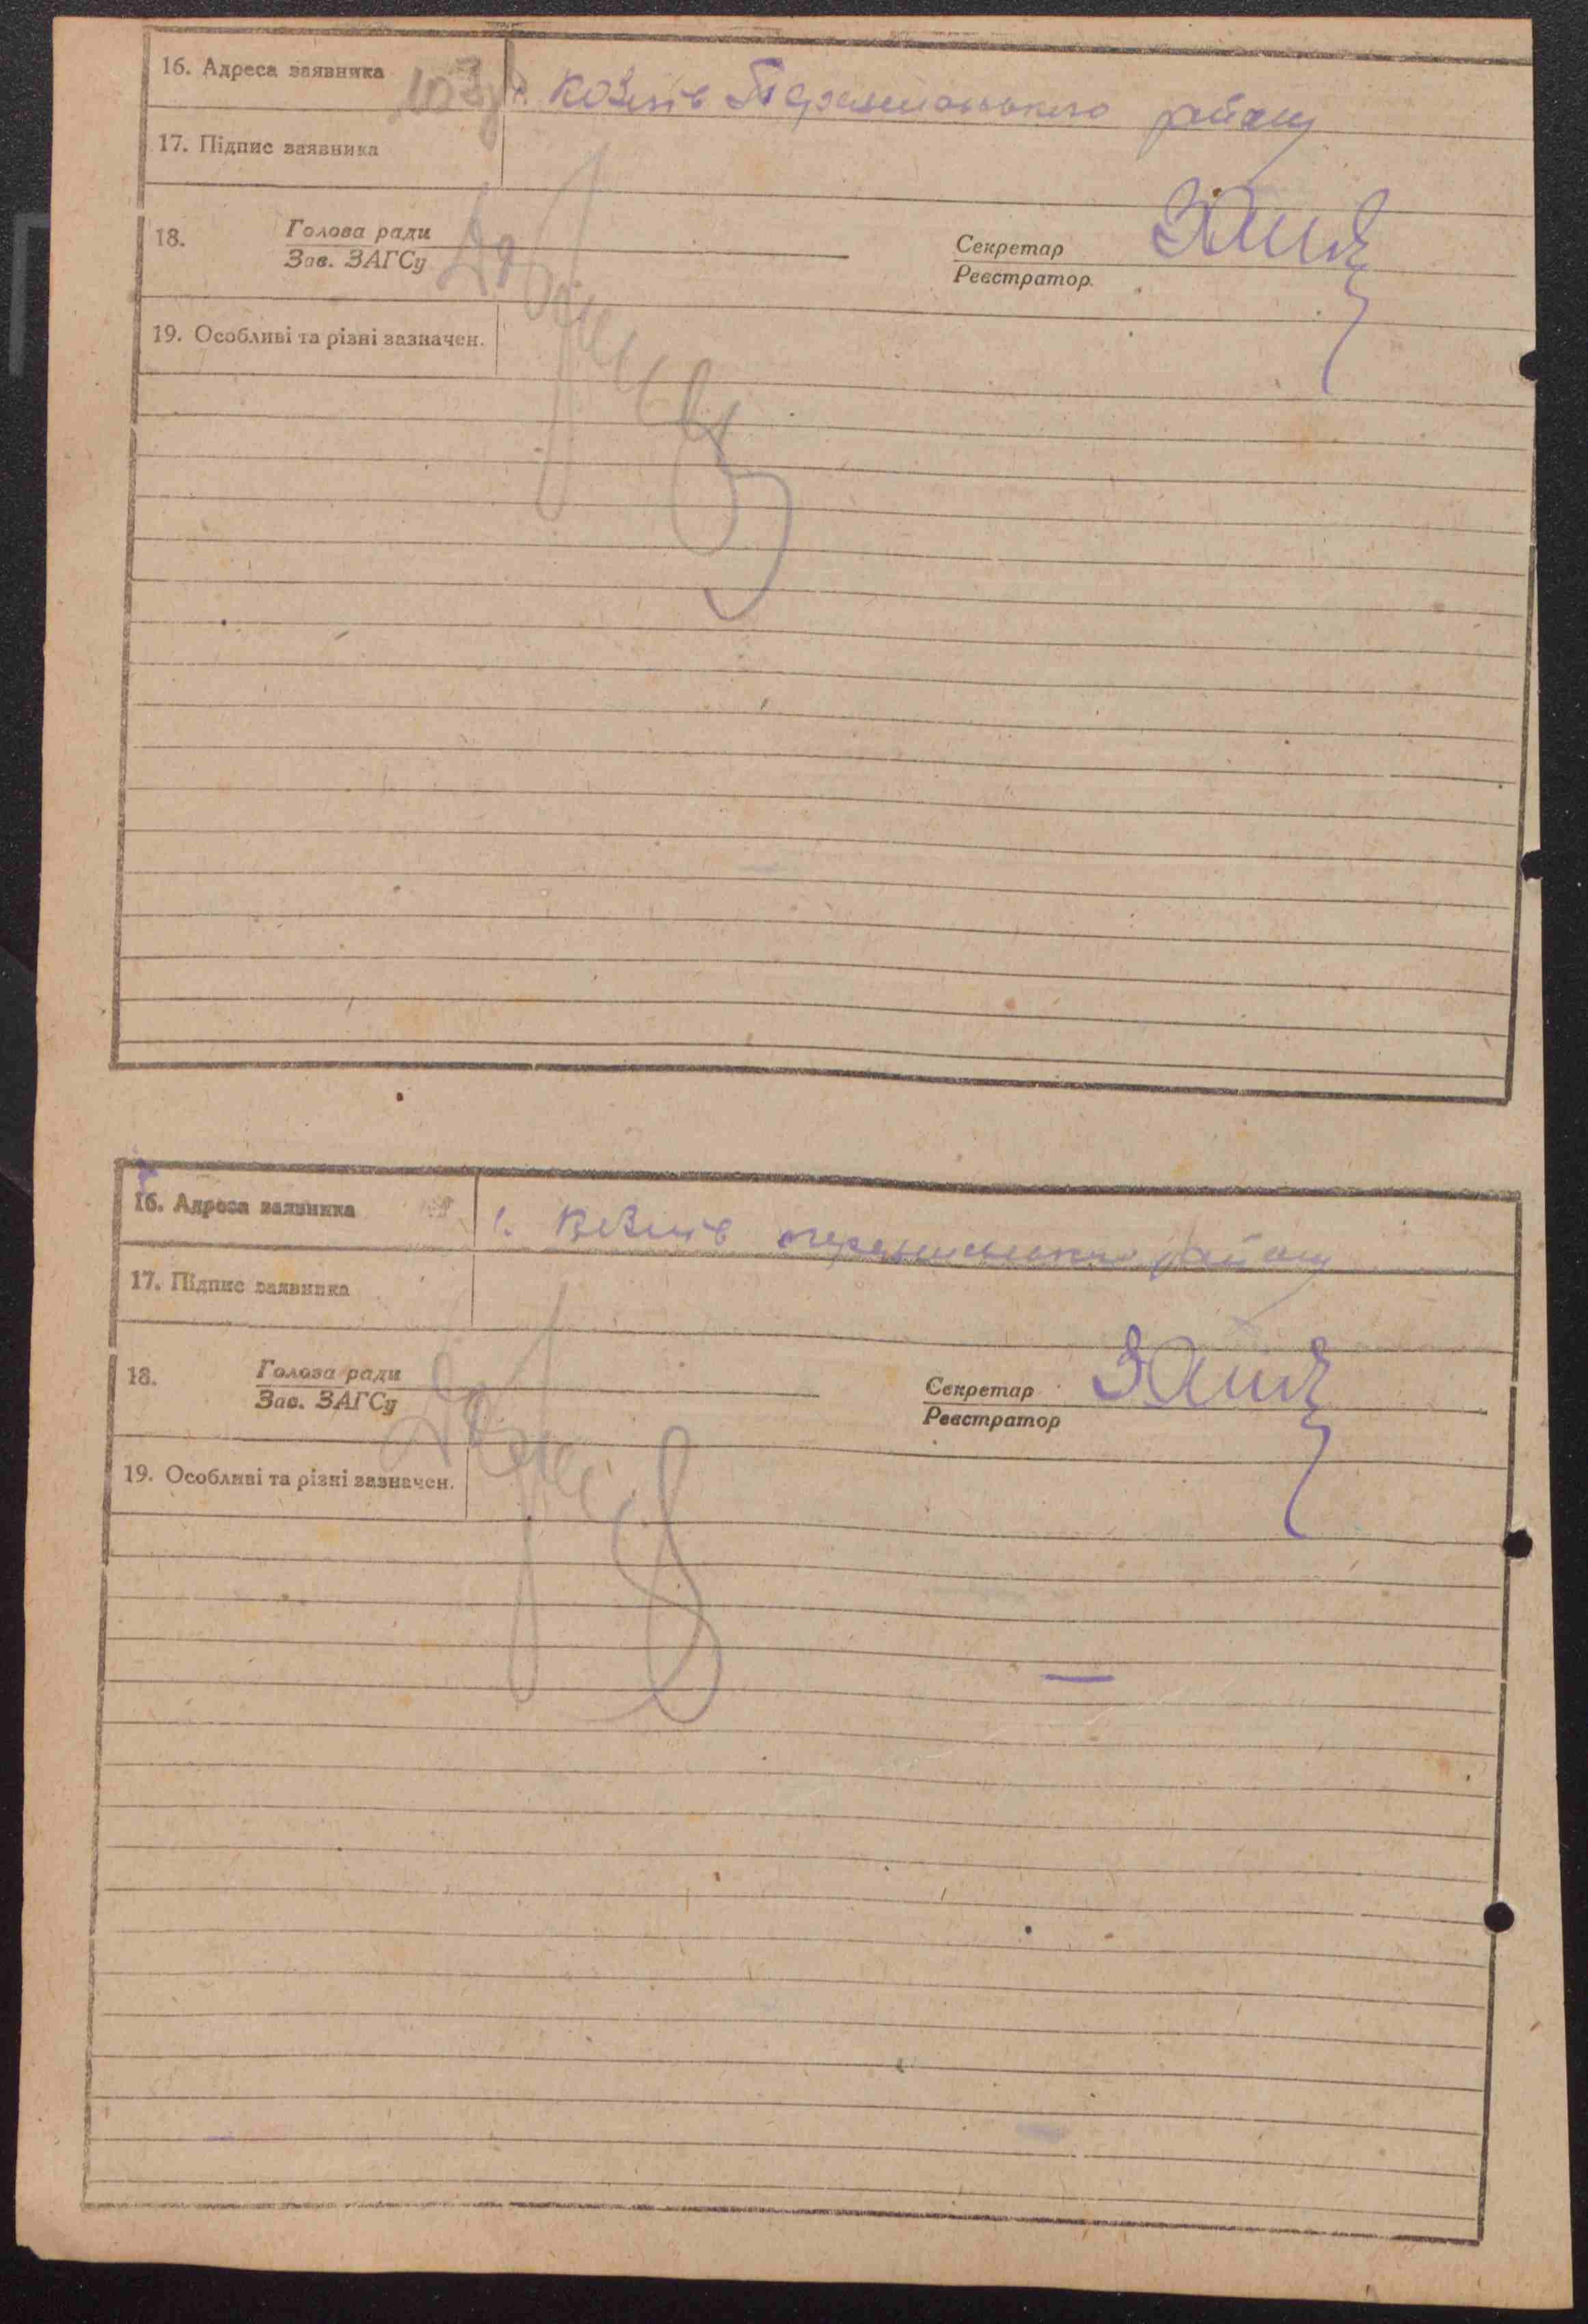 16. Адреса заявника
с. Козлів района
17. Підпис заявника
18. Голова ради
Зав. ЗАГСу
Секретар
Реєстратор.
19. Особливі та різні зазначен.
16. Адреса заявника
с. Козлів району
17. Підпис заявника
18. Голова ради
Зав. ЗАГСу
Секретар
Реєстратор
19. Особливі та різні зазначен.